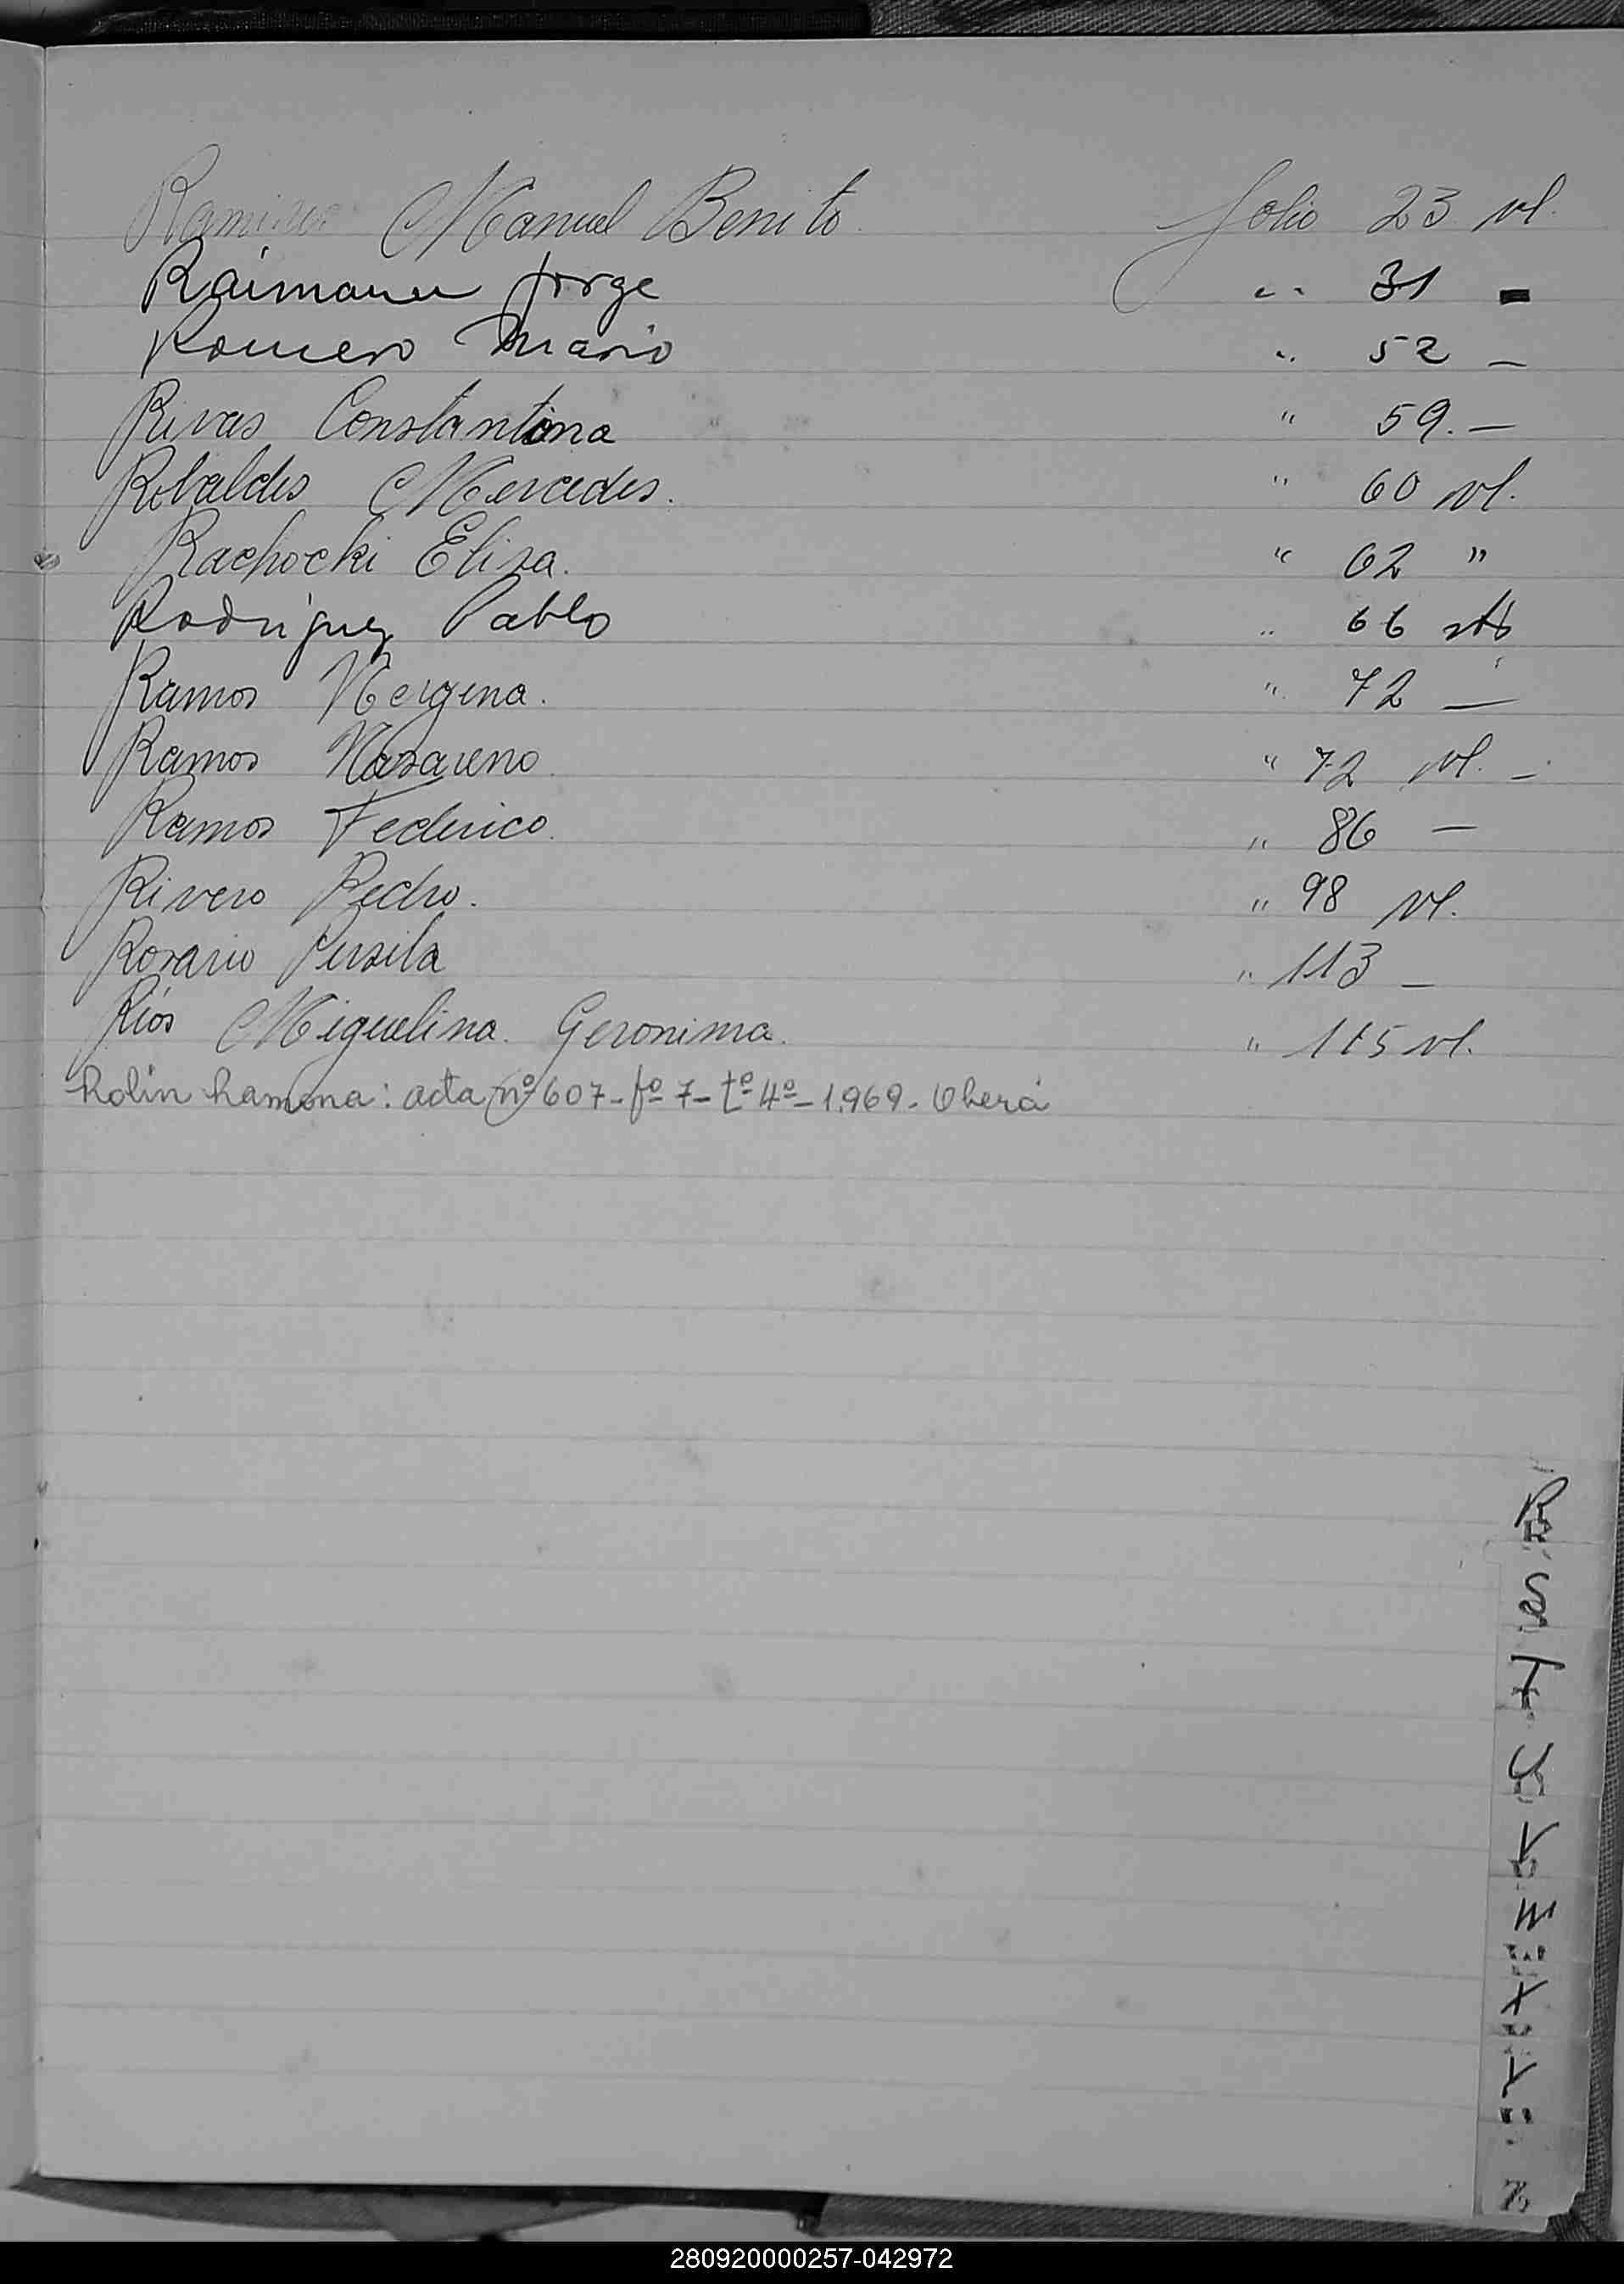 Manuel Benito. folio 23 vl.
Raimann Jorge " 31 -
Romero Mario " 52 -
Rivas Constantina " 59. -
Robaldes Mercedes. " 60 vl.
Rachocki Elisa. " 62 "
Rodriguez Pablo " 66
Ramos Nergena. " 72 -
Ramos Nazareno. " 72 vl. -
Ramos Federico. " 86 -
Rivero Pedro. " 98 vl.
Rosario Persila " 113 -
Ríos Miguelina. Geronima. " 115 vl.
Rolin Ramona: acta nº 607 - fº 7 - tº 4º - 1.969 - Oberá
R
S
T
U
V
W
X
Y
Z
280920000257-042972